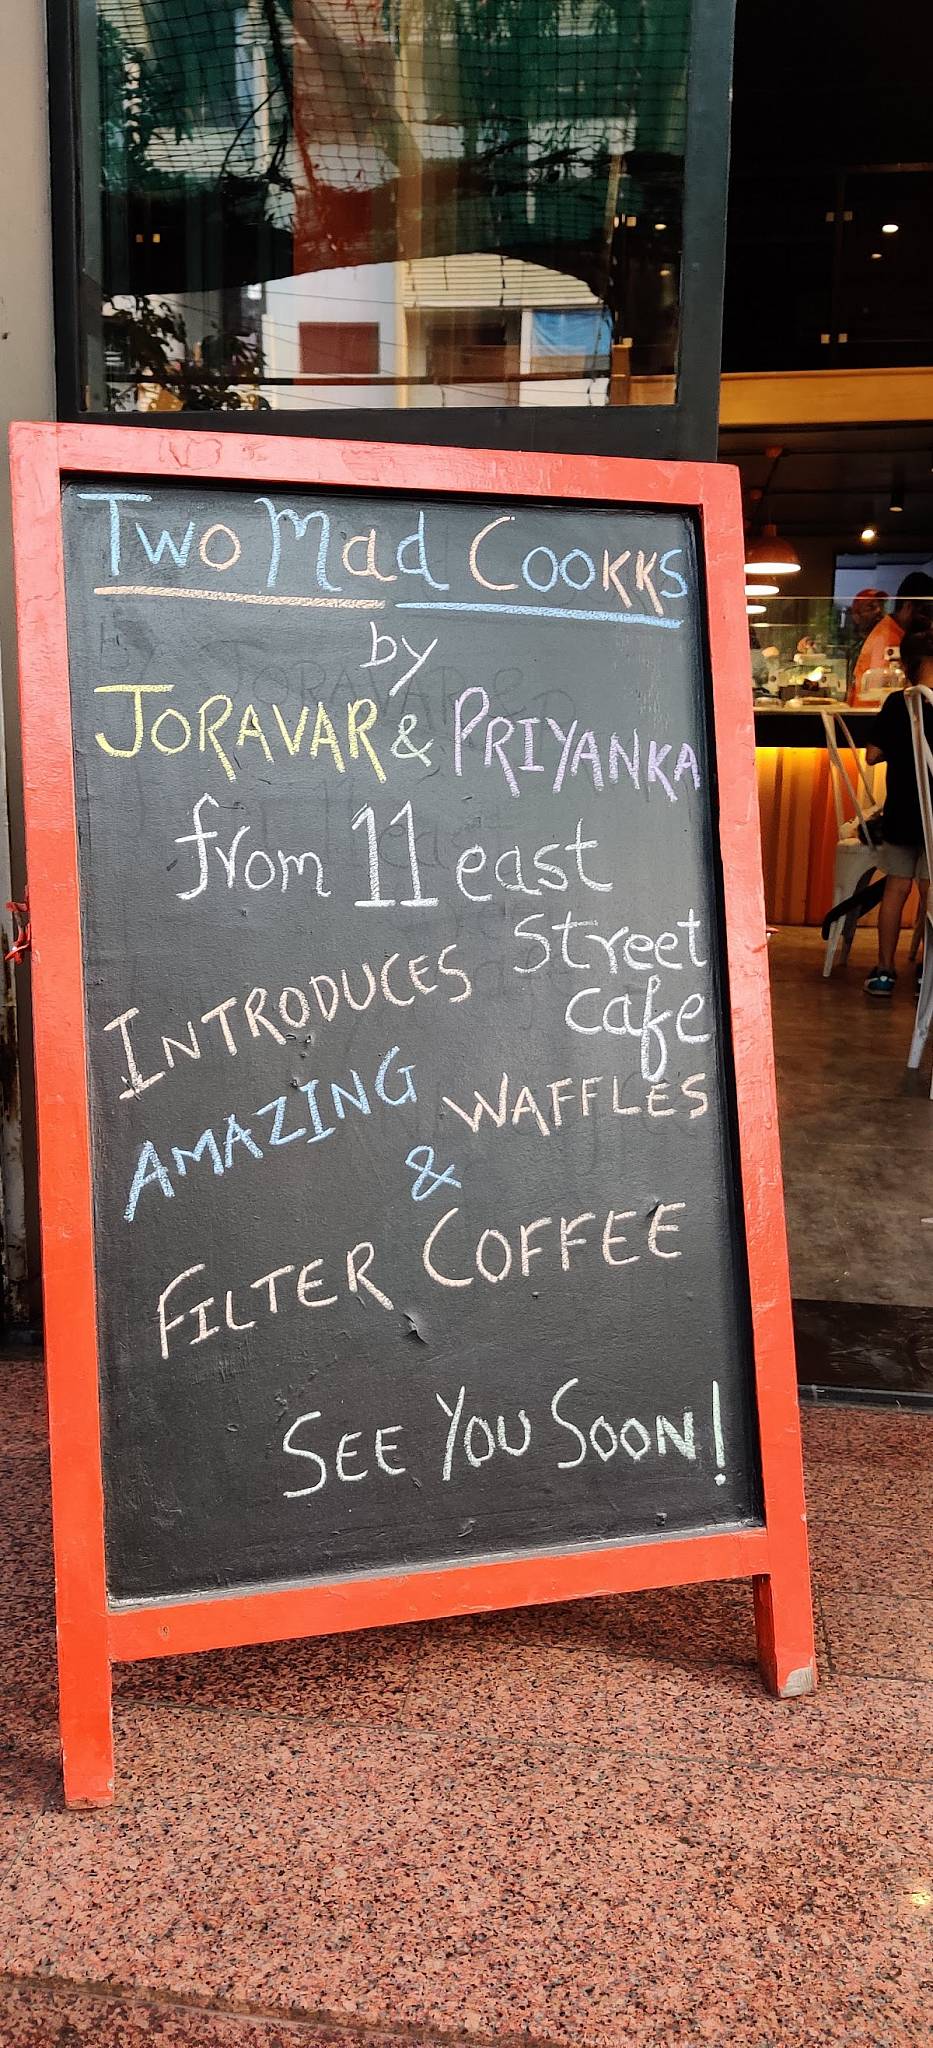 Two Mad Cookks
by
JORAVAR & PRIYANKA
from 11 east
Street
cafe
INTRODUCES
AMAZING WAFFLES
&
FILTER COFFEE
SEE YOU SOON!